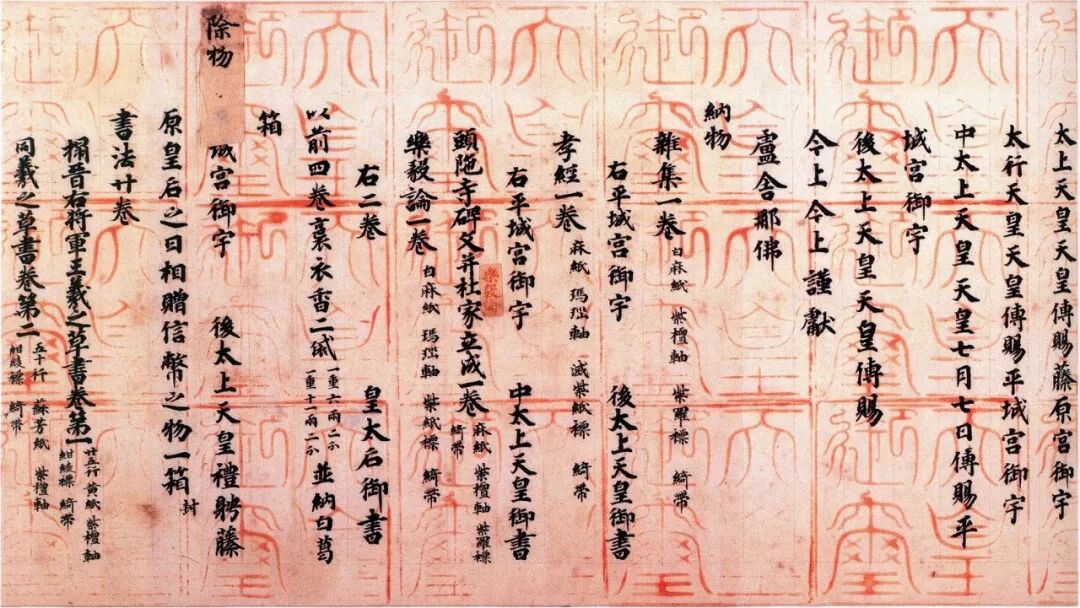 太上天皇天皇傳賜藤原宮御宇
太行天皇天皇傳賜平城宮御宇
中太上天皇天皇七月七日傳賜平
城宮御宇
後太上天皇天皇傳賜
今上今上謹獻
盧舍那佛
納物
雜集一卷 白麻紙 紫檀軸 紫羅褾 綺帶
右平城宮御宇 後太上天皇御書
孝經一卷 麻紙 瑪瑙軸 滅紫紙褾 綺帶
右平城宮御宇 中太上天皇御書
頭陁寺碑文并杜家立成一卷 麻紙 紫檀軸 紫羅褾 綺帶
樂毅論一卷 白麻紙 瑪瑙軸 紫紙褾 綺帶
右二卷 皇太后御書
以前四卷裹衣香二袋 一重六兩二分 一重十一兩二分 並納白葛
箱
除物
城宮御宇 後太上天皇禮聘藤
原皇后之日相贈信幣之物一箱 封
書法廿卷
搨晉右將軍王羲之草書卷第一 廿五行 黃紙 紫檀軸 紺綾褾 綺帶
同羲之草書卷第二 五十行 蘇芳紙 紫檀軸 紺綾褾 綺帶
天皇御璽